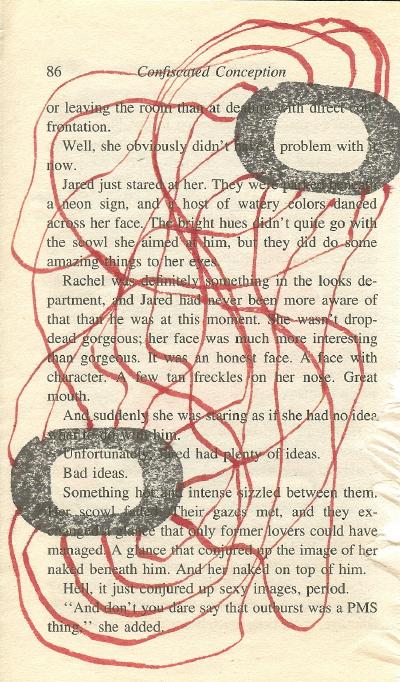 86 Confiscated Conception
or leaving the room than at dealing with direct con-
frontation.
Well, she obviously didn't have a problem with it
now.
Jared just stared at her. They were
a neon sign, and a host of watery colors danced
across her face. The bright hues didn't quite go with
the scowl she aimed at him, but they did do some
amazing things to her eyes.
Rachel was definitely something in the looks de-
partment, and Jared had never been more aware of
that than he was at this moment. She wasn't drop-
dead gorgeous; her face was much more interesting
than gorgeous. It was an honest face. A face with
character. A few tan freckles on her nose. Great
mouth.
And suddenly she was staring as if she had no idea
what to do with him.
Unfortunately, Jared had plenty of ideas.
Bad ideas.
Something hot and intense sizzled between them.
Her scowl faded. Their gazes met, and they ex-
changed a glance that only former lovers could have
managed. A glance that conjured up the image of her
naked beneath him. And her naked on top of him.
Hell, it just conjured up sexy images, period.
"And don't you dare say that outburst was a PMS
thing," she added.